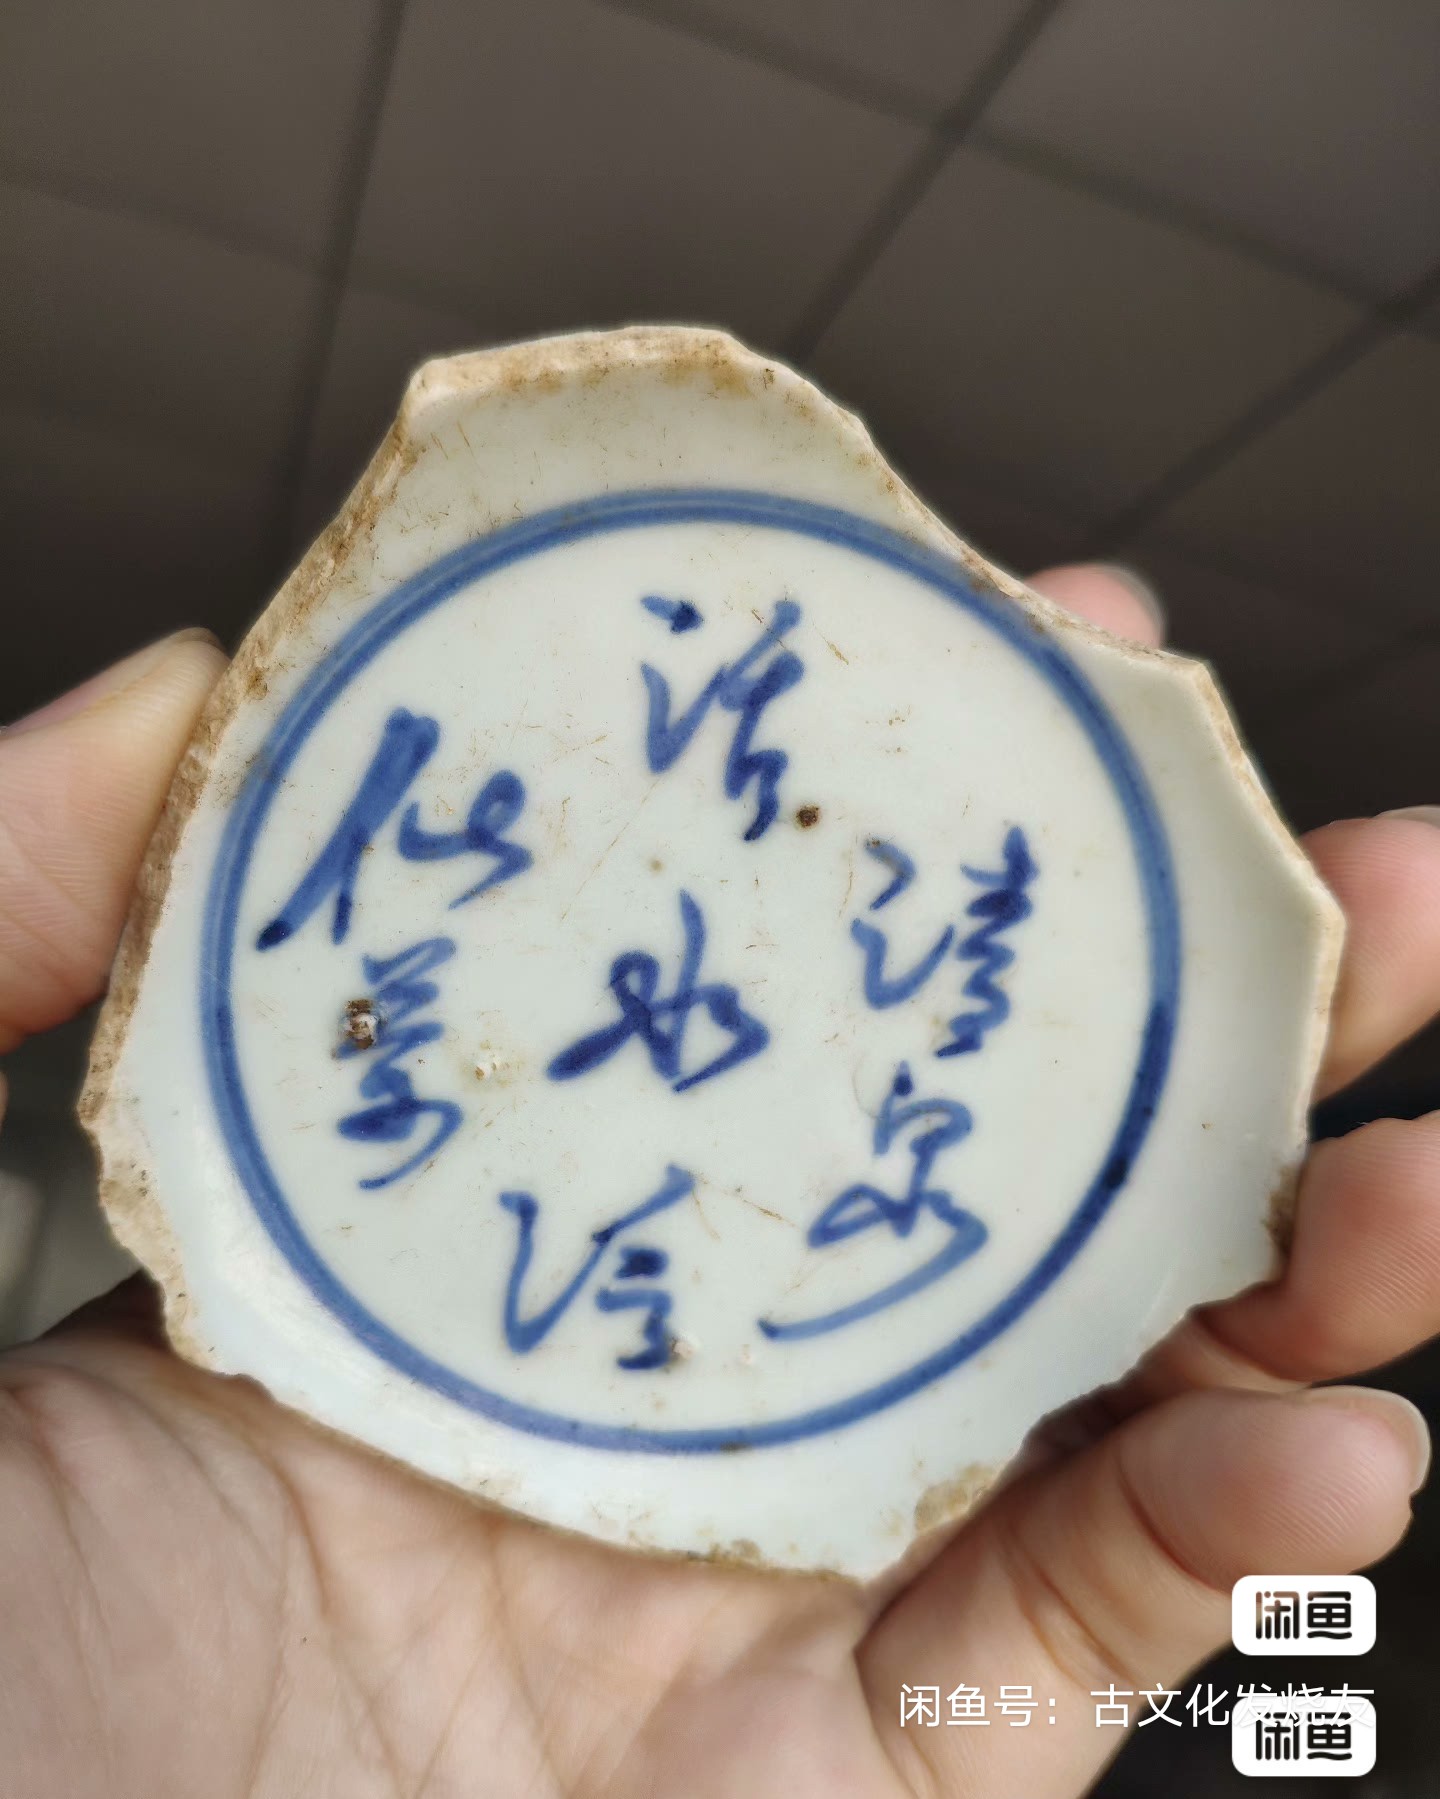 清泉
活水
萬
闲鱼
闲鱼号：古文化发烧友
闲鱼